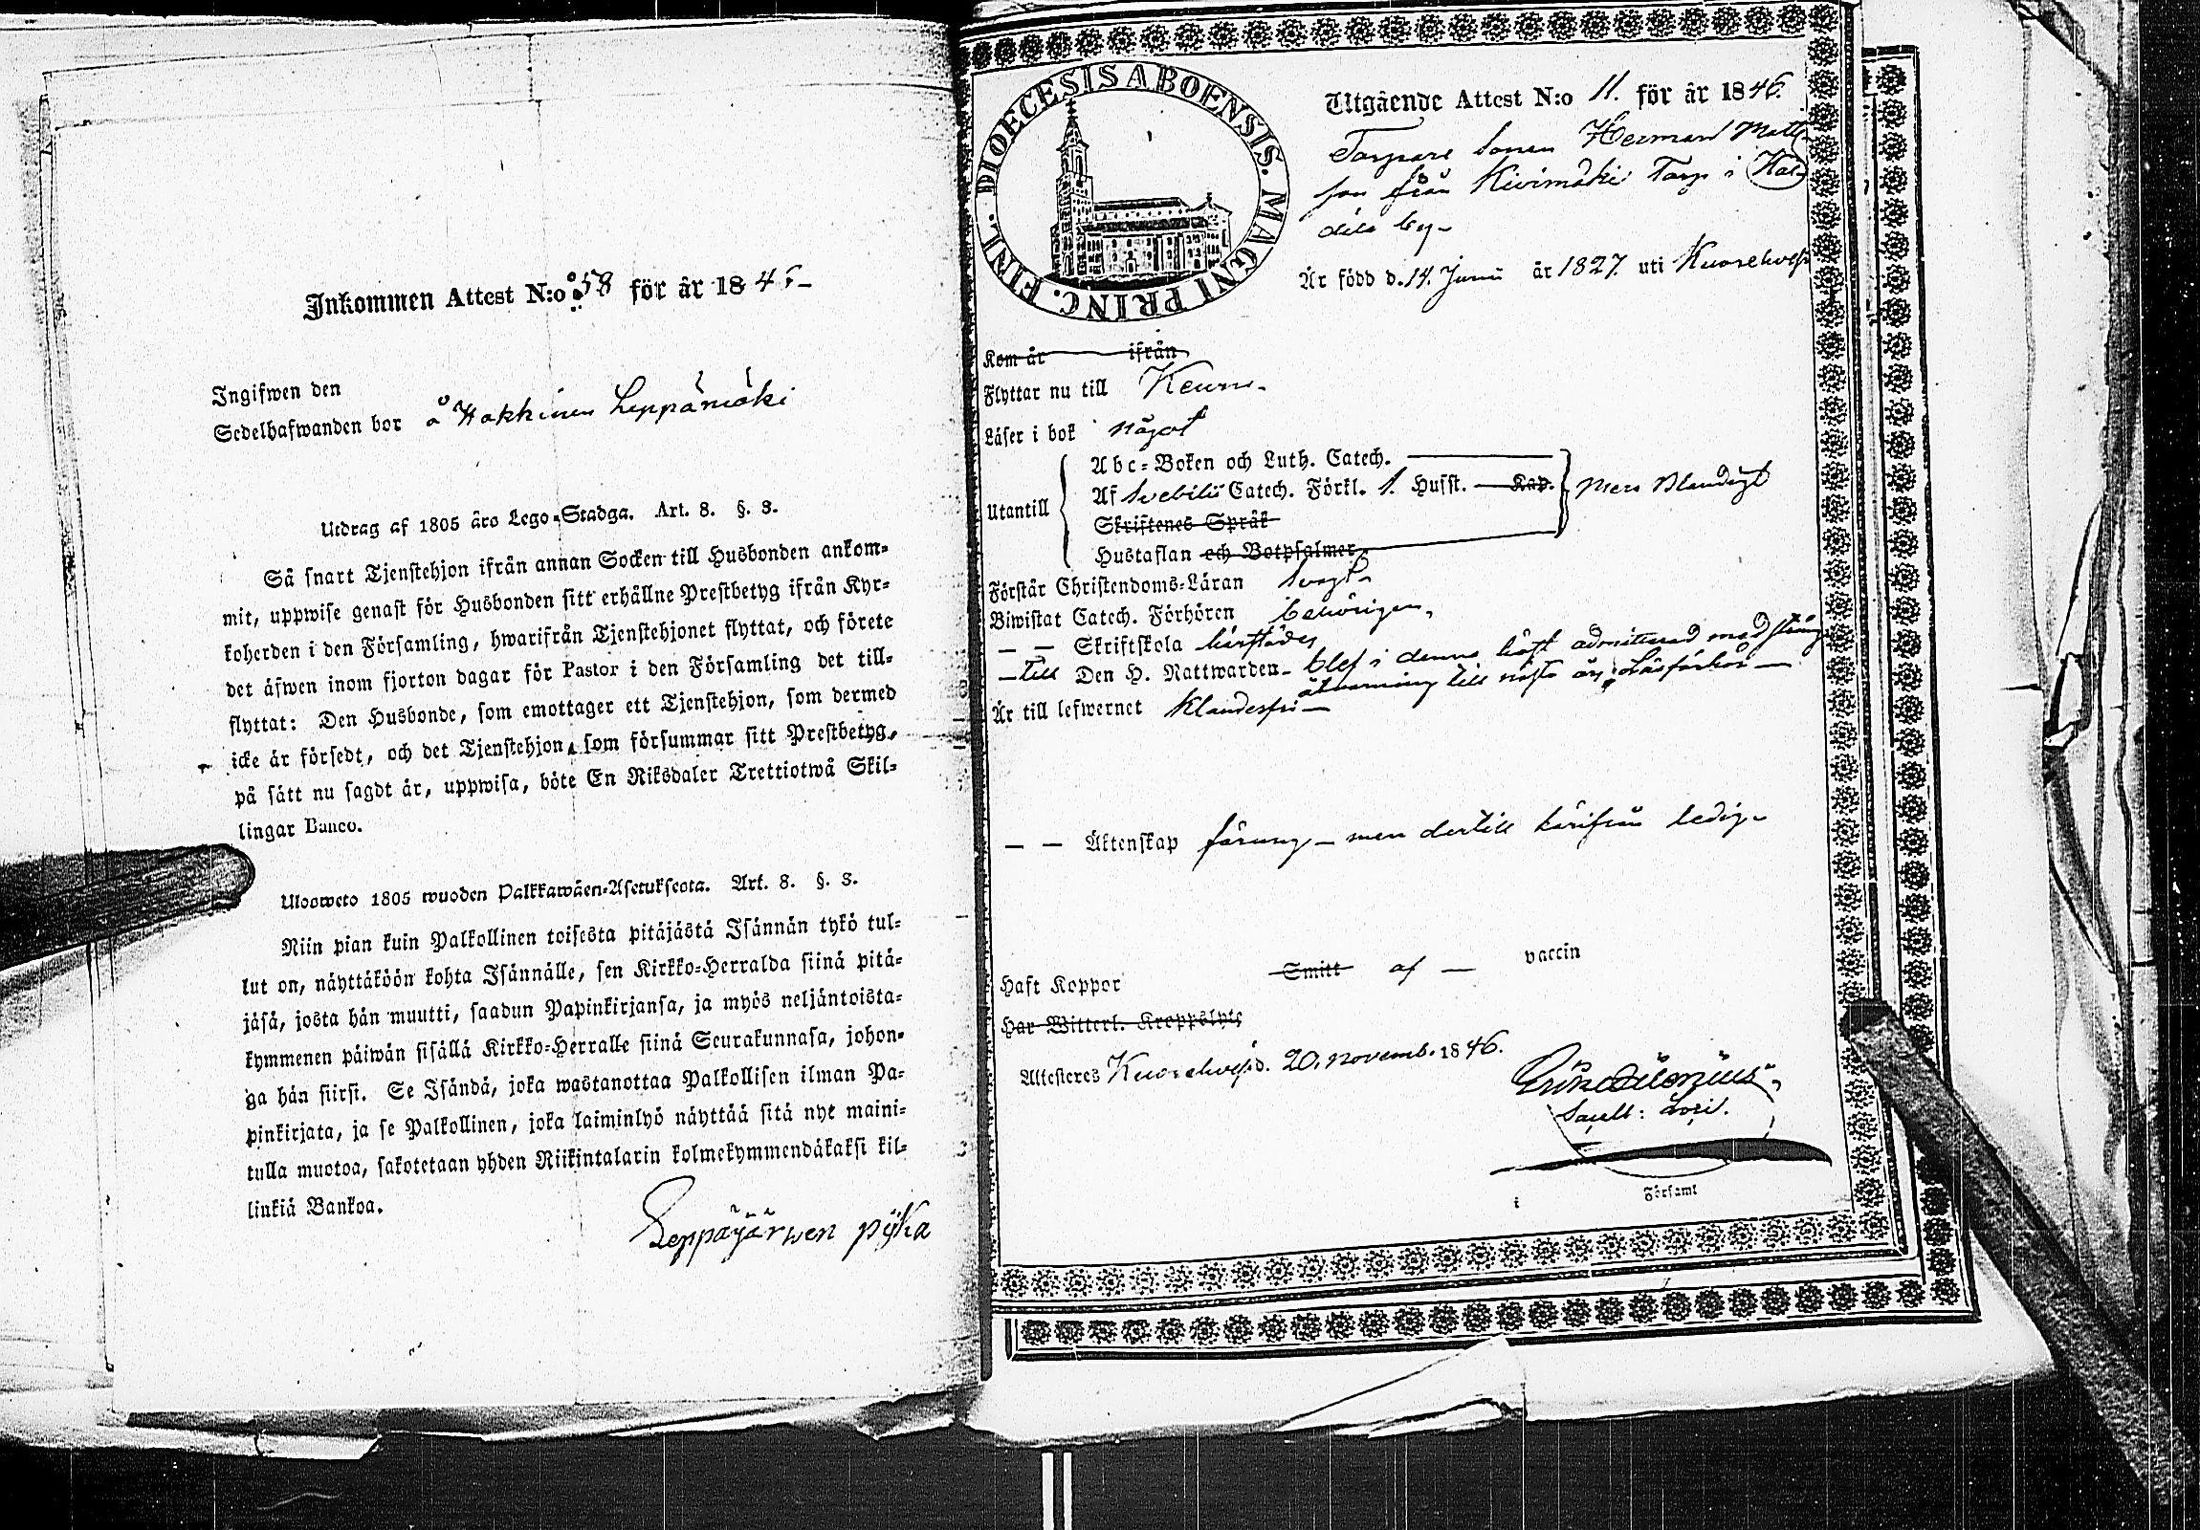 Inkommen Attest N:o 58 för år 1846
Ingifwen den
Sedelhafwanden bor å Hakkinen Leppämäki
Utdrag af 1805 års Lego-Stadga. Art. 8. §. 3.
Så snart Tjenstehjon ifrån annan Socken till Husbonden ankom-
mit, uppwise genast för Husbonden sitt erhållne Prestbetyg ifrån Kyr-
koherden i den Församling, hwarifrån Tjenstehjonet flyttat, och förete
det äfwen inom fjorton dagar för Pastor i den Församling det till-
flyttat: Den Husbonde, som emottager ett Tjenstehjon, som dermed
icke är försedt, och det Tjenstehjon, som försummar sitt Prestbetyg,
på sätt nu sagdt är, uppwisa, böte En Riksdaler Trettiotwå Skil-
lingar Banco.
Uloosweto 1805 wuoden Palkkawäen-Asetuksesta. Art. 8. §. 3.
Niin pian kuin Palkollinen toisesta pitäjästä Isännän tykö tul-
lut on, näyttäköön kohta Isännälle, sen Kirkko-Herralda siinä pitä-
jäsä, josta hän muutti, saadun Papinkirjansa, ja myös neljäntoista-
kymmenen päiwän sisällä Kirkko-Herralle siinä Seurakunnasa, johon-
ga hän siirsi. Se Isändä, joka wastanottaa Palkollisen ilman Pa-
pinkirjata, ja se Palkollinen, joka laiminlyö näyttää sitä nyt maini-
tulla muotoa, sakotetaan yhden Riikintalarin kolmekymmendäkaksi kil-
linkiä Bankoa.
Leppäyärwen pyka
DIOECESIS ABOENSIS. MAGNI PRINC. FINL.
Utgående Attest N:o 11. för år 1846.
Torpare Sonen Herman Matts
son från Kivimäki Torp i
by
Är född d. 14. Junii år 1827 uti Kuorehvesi
Kom år ifrån
Flyttar nu till Keuru
Läser i bok något
Abc-Boken och Luth. Catech.
Utantill Af Svebilii Catech. Förkl. 1. Husst. Kap. mera Blandigt
Skriftenes Språk
Hustaflan och Botpsalmer
Förstår Christendoms-Läran svagt
Biwistat Catech. Förhören behörigen
— — Skriftskola härstädes
— till Den H. Nattwarden blef i denna höst admitterad med sträng
åtvarning till nästa års Läsförhör
Är till lefwernet Klanderfri
— — Äktenskap förung men dertill härifrån ledig
Haft Koppor Smitt af — vaccin
Har Witterl. Kroppslyte
Attesteres Kuorehvesi d. 20. Novemb. 1846.
Sacell:
i Församl